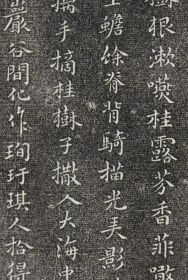 樹根漱嚥桂露芬香菲
蟾餘脊背騎描光美影
手摘桂樹子撒入大海中
巖谷間化作珣玗琪人拾得